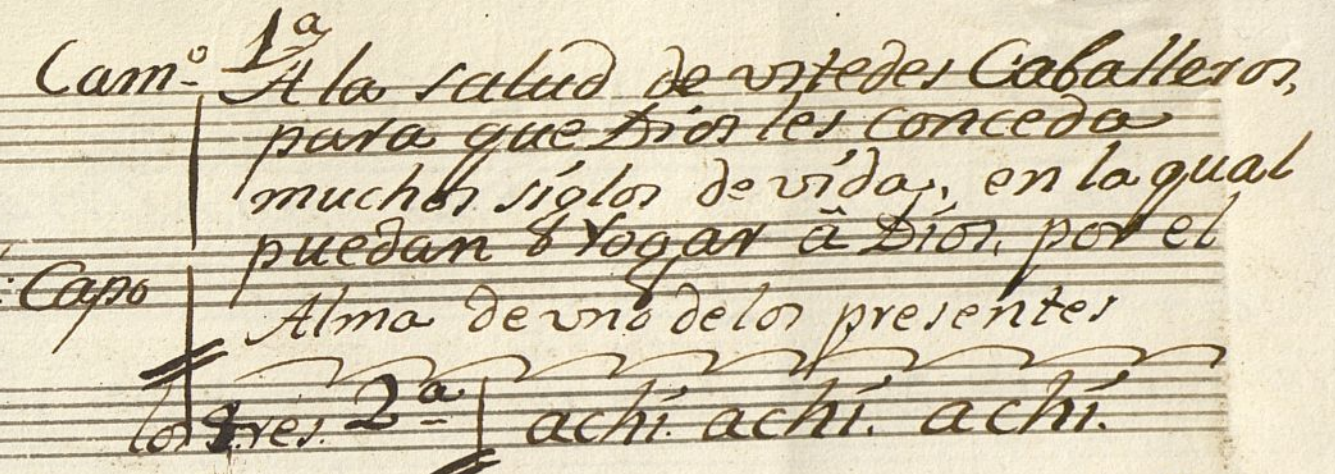 Cam.º 1ª A la salud de ustedes Caballeros,
para que Dios les conceda
muchos siglos de vida, en la qual
puedan rogar â Dios, por el
Capo
Alma de uno de los presentes
los tres. 2ª achi. achi. achi.